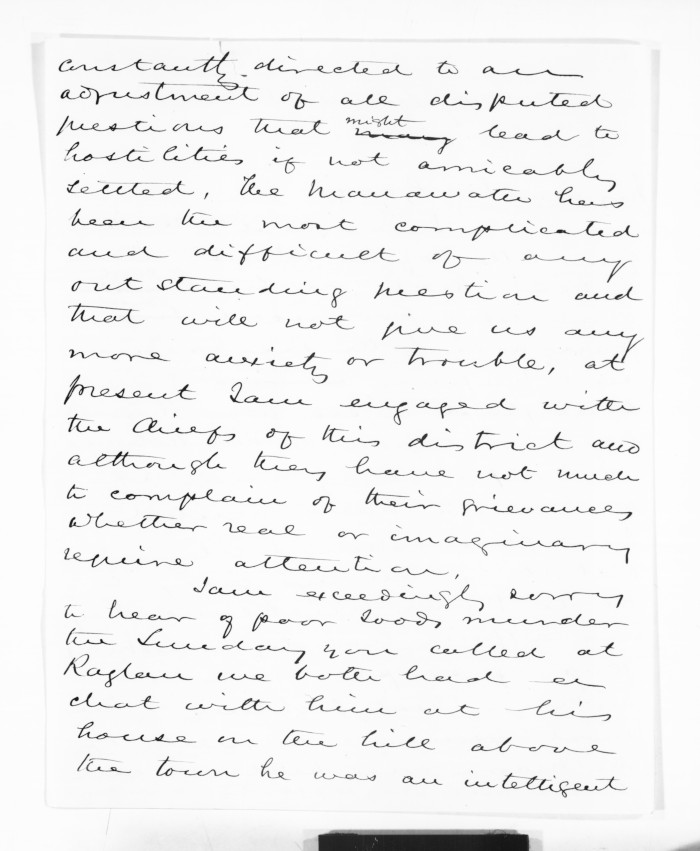 constantly directed to an
adjustment of all disputed
questions that might many lead to
hostilities if not amicably
settled, The Manawatu has
been the most complicated
and difficult of any
outstanding question and
that will not give us any
more anxiety or trouble, at
present I am engaged with
the Chiefs of this district and
although they have not much
to complain of their grievances
whether real or imaginary
require attention,
I am exceedingly sorry
to hear of poor Todds murder
the Sunday you called at
Raglan we both had a
chat with him at his
house on the hill above
the town he was an intelligent